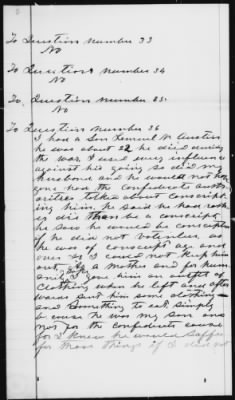 To Question Number 33
No
To Question Number 34
No
To Question Number 35
No
To Question Number 36
I had a Son Lemuel W. Austin
he was about 22 he died during
the war, I used every influence
against his going so did my
husband and he would not have
gone had the Confederate auth
orities talked about conscript
ing him. he said he had rath
er die than be a conscript
he said he would be conscripted
if he did not volunteer and
he was of conscript age and
I could not keep him
out. a mother and for hum
anity I gave him an outfit of
Clothing when he left and after
wards sent him some clothing
and Something to eat, Simply
because he was my Son and
not for the Confederate cause
for I knew he would suffer
for those things if I did not